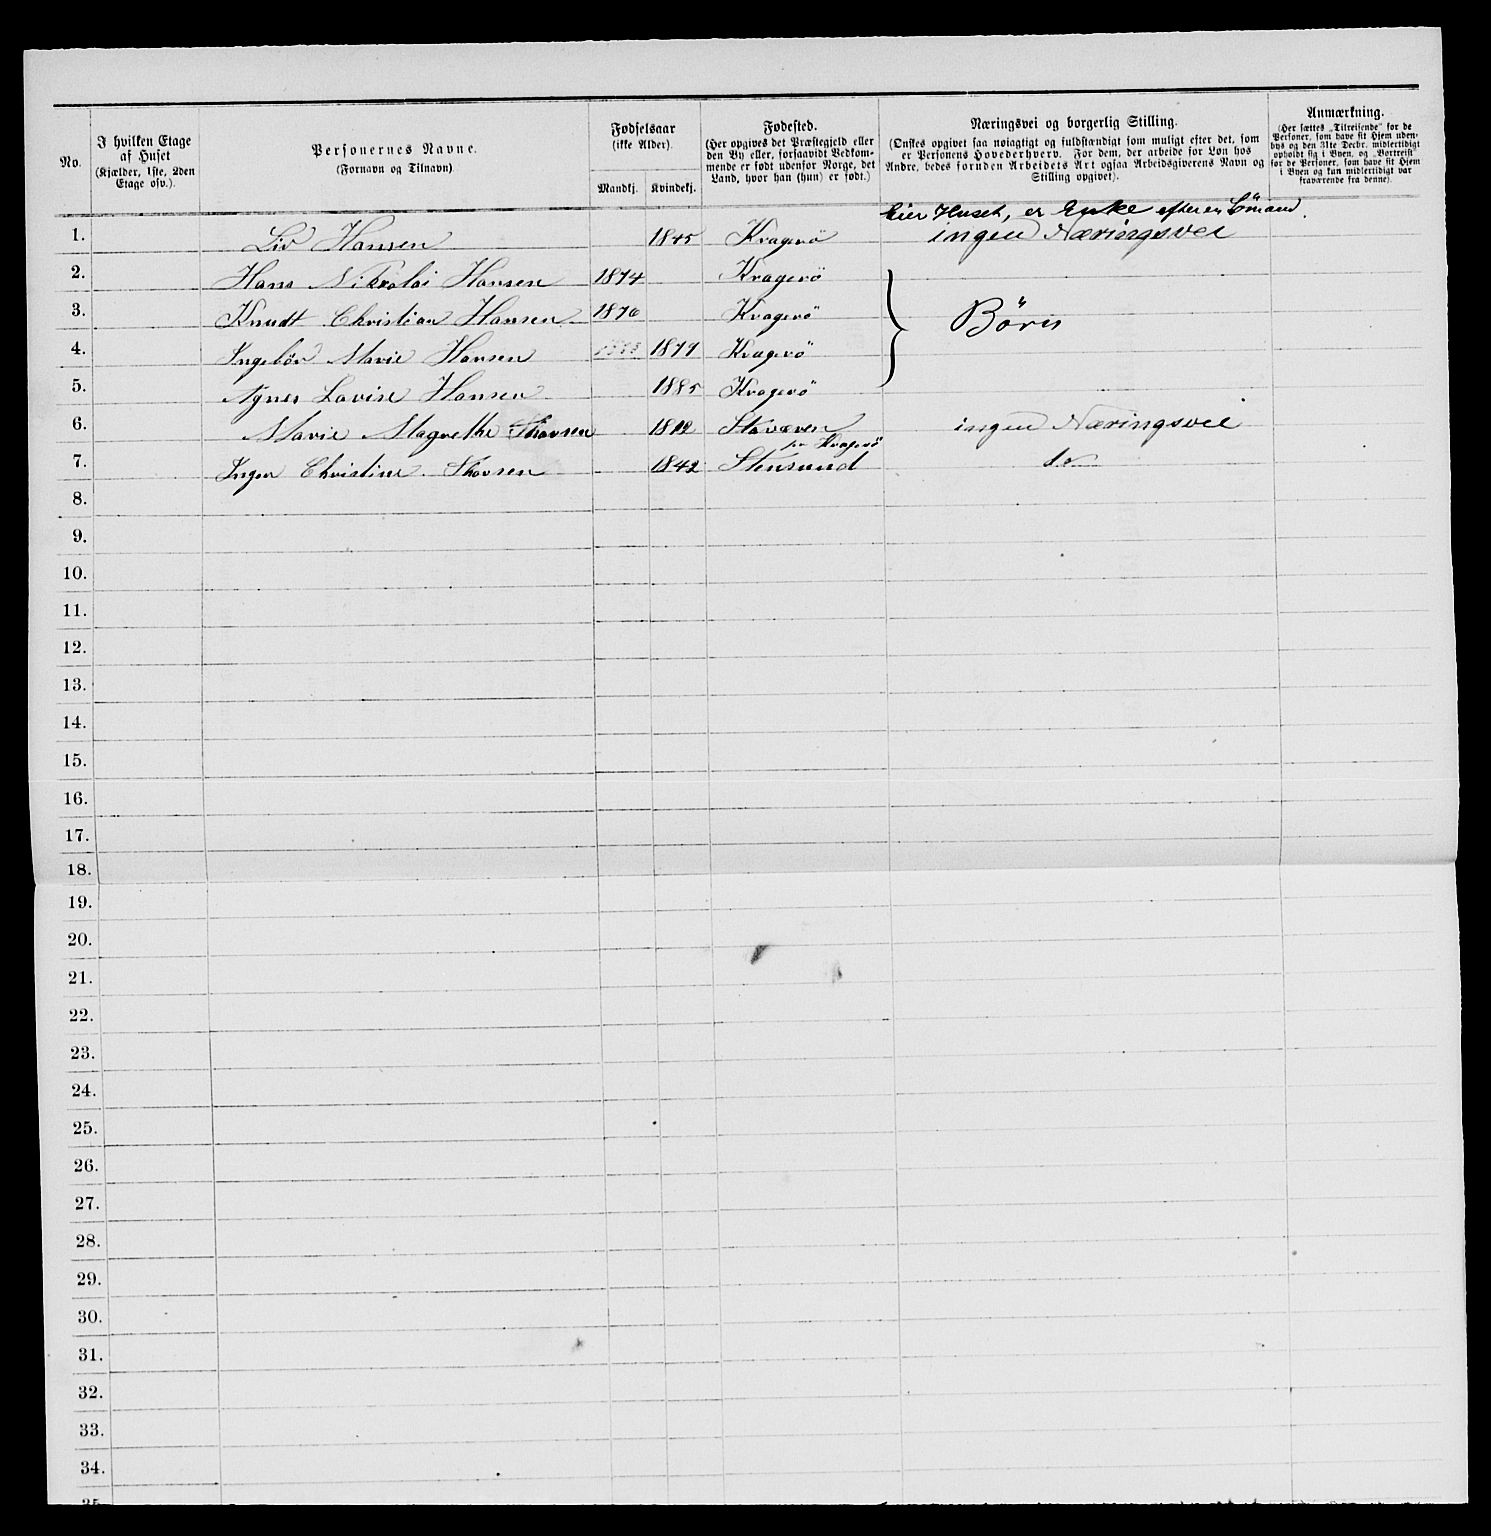 No.
I hvilken Etage af Huset
(Kjælder, 1ste, 2den Etage osv.).
Personernes Navne.
(Fornavn og Tilnavn)
Fødselsaar
(ikke Alder).
Mandkj. Kvindekj.
Fødested.
(Her opgives det Præstegjeld eller
den By eller, forsaavidt Vedkom-
mende er født udenfor Norge, det
Land, hvor han (hun) er født.)
Næringsvei og borgerlig Stilling.
(Ønskes opgivet saa nøiagtigt og fuldstændigt som muligt efter det, som
er Personens Hovederhverv. For dem, der arbeide for Løn hos
Andre, bedes foruden Arbeidets Art ogsaa Arbeidsgiverens Navn og
Stilling opgivet).
Anmærkning.
(Her sættes „Tilreisende" for de
Personer, som have sit Hjem uden-
bys og den 31te Decbr. midlertidigt
opholdt sig i Byen, og „Bortreist"
for de Personer, som have sit Hjem
i Byen og kun midlertidigt var
fraværende fra denne).
Eier Huset, er Enke efter en Sömand.
1. Liv Hansen 1845 Kragerö ingen Næringsvei
2. Hans Nikolai Hansen 1874 Kragerö
3. Knudt Christian Hansen 1876 Kragerö Börn
4. Ingebör Marie Hansen 1879 Kragerö
5. Agnes Lovise Hansen 1885 Kragerö
6. Marie Magrethe Thorsen 1812 Staværen ingen Næringsvei
pr Kragerö
7. Inger Christine Thorsen 1842 Stensund do
8.
9.
10.
11.
12.
13.
14.
15.
16.
17.
18.
19.
20.
21.
22.
23.
24.
25.
26.
27.
28.
29.
30.
31.
32.
33.
34.
35.